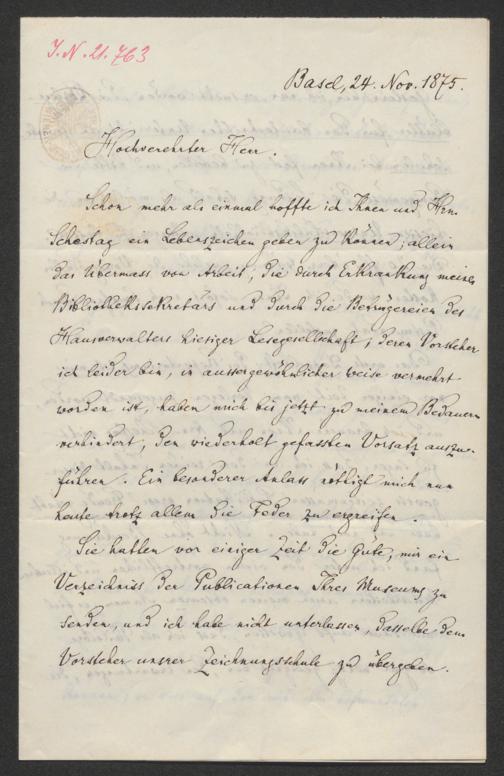 J. N. 21.763
Basel, 24. Nov. 1875.
Hochverehrter Herr.
Schon mehr als einmal hoffte ich Ihnen und Hrn.
Schestag ein Lebenszeichen geben zu können; allein
das Übermass von Arbeit, die durch Erkrankung meines
Bibliothekssekretärs und durch die Betrügereien des
Hausverwalters hiesiger Lesegesellschaft, deren Vorsteher
ich leider bin, in aussergewöhnlicher Weise vermehrt
worden ist, haben mich bis jetzt, zu meinem Bedauern
verhindert, den wiederholt gefassten Vorsatz auszu-
führen. Ein besonderer Anlass nöthigt mich nun
heute trotz allem die Feder zu ergreifen.
Sie hatten vor einiger Zeit die Güte, mir ein
Verzeichniss der Publicationen Ihres Museums zu
senden, und ich habe nicht unterlassen, dasselbe dem
Vorsteher unsrer Zeichnungsschule zu übergeben.